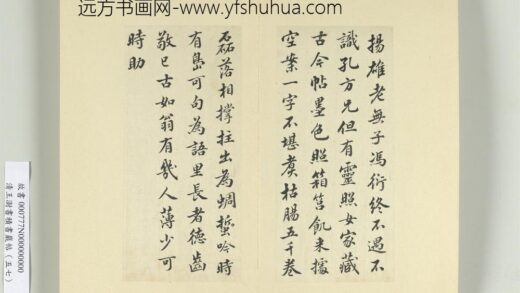 远方书画网-www.yfshuhua.com
揚雄老無子馮衍終不遇不
識孔方兄但有靈照女家藏
古今帖墨色照箱筥飢來據
空案一字不堪煮枯腸五千卷
磊落相撐拄出為蜩蛩吟時
有島可句為語里長者德齒
敬已古如翁有幾人薄少可
時助
故書 000777N00000000
清王澍書積書巖帖(五七)